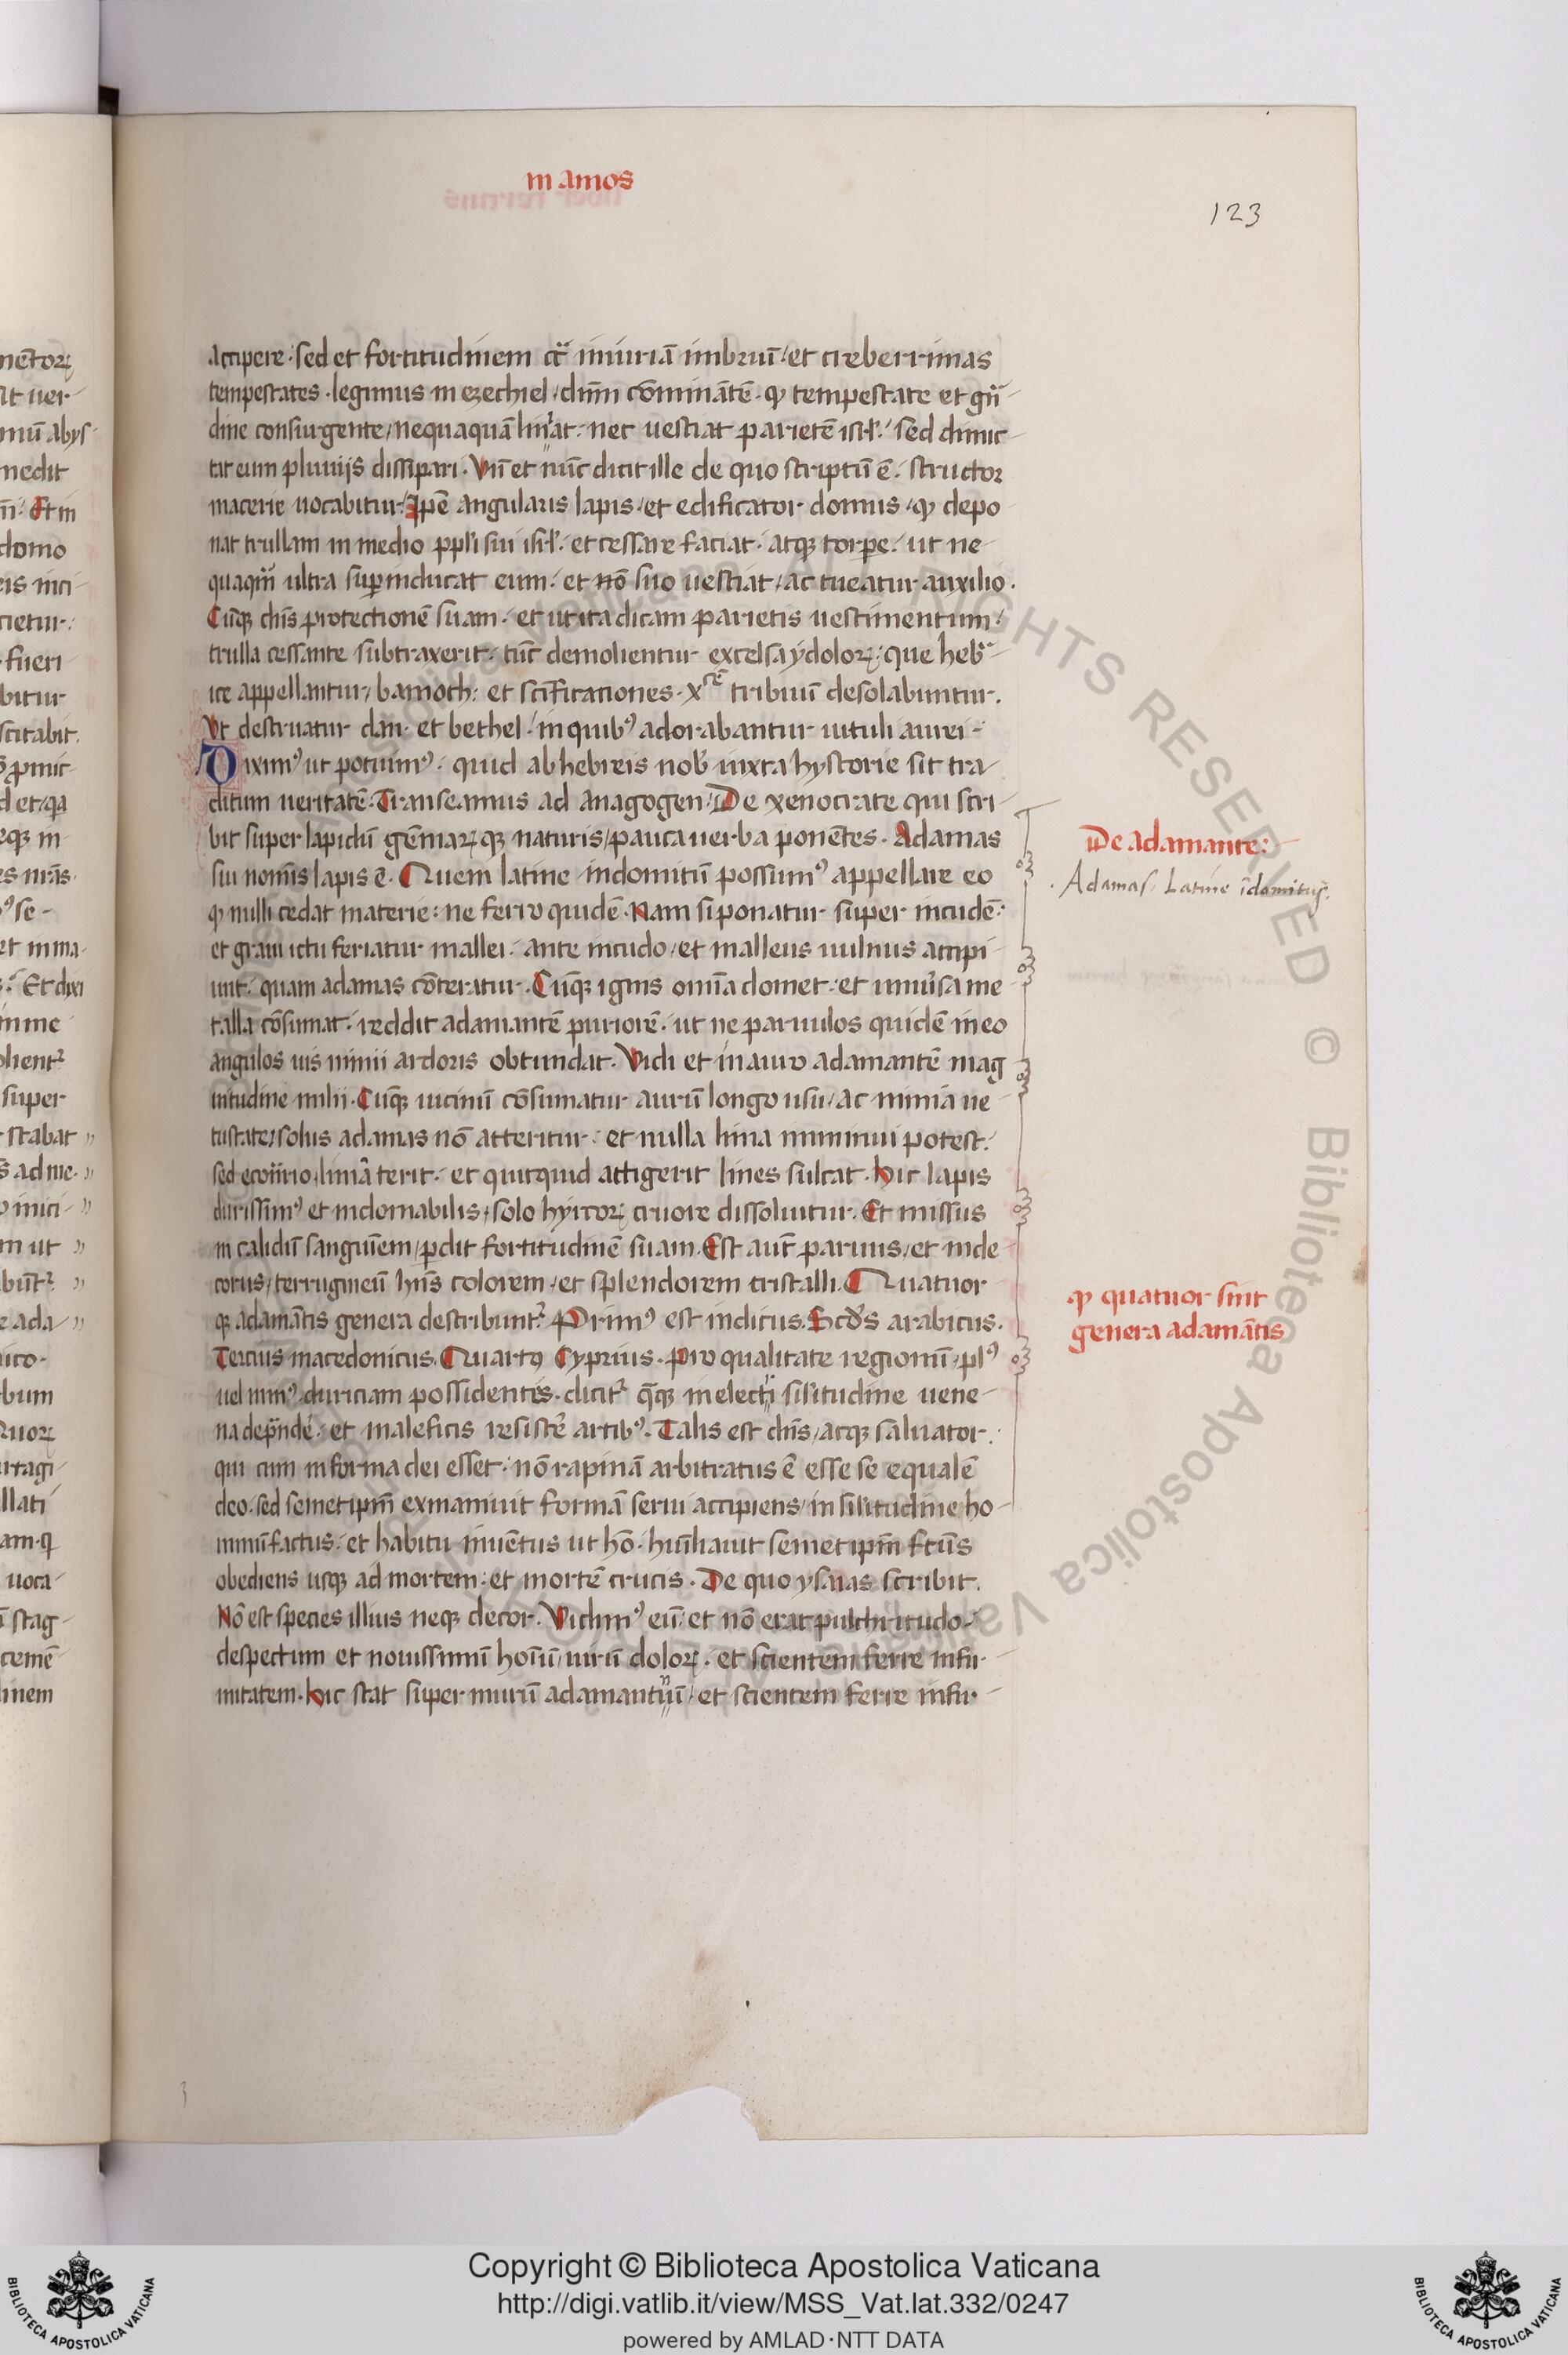 in amos
123
accipere. sed et fortitudinem cͣ iniuriā imbriū / et creberrimas
tempestates. legimus in ezechiel / dnm̄ cōminātē. ꝙ tempestate et grā-
dine consurgente / nequaquā liniat. nec uestiat parietē isrl̄. sed dimit-
tat eum pluuijs dissipari. Vn̄ et nūc dicit ille de quo scriptū ē. structor
macerie uocabitur. Ipē angularis lapis / et edificator domus / ꝙ depo
nat trullam in medio ppl̓i sui isrl̄. et cessare faciat. atqꝫ torpe. ut ne
quaqm̄ ultra suꝑinducat eum. et nō suo uestiat / ac tueatur auxilio.
Cūqꝫ chīs protectionē suam. et ut ita dicam parietis uestimentum /
trulla cessante subtraxerit. tūc demolientur excelsa ydoloꝝ. que heb̓-
ice appellantur / bamoth. et scīficationes .x͞cē tribuū desolabuntur.
Vt destruatur dan. et bethel / in quibꝰ adorabantur uituli aurei -
Diximꝰ ut potuimꝰ. quid ab hebreis nob̓ iuxta hystorie sit tra
ditum ueritatē. Transeamus ad anagogen / De xenocrate qui scri-
bit super lapidū gēmaꝝqꝫ naturis / pauca uerba ponētes. Adamas
sui nomīs lapis ē. Quem latine indomitū possumꝰ appellare eo
ꝙ nulli cedat materie: ne ferro quidē. Nam si ponatur super incudē.
et graui ictu feriatur mallei. ante incudo / et malleus uulnus accipi-
unt. quam adamas cōteratur. Cūqꝫ ignis omīa domet. et uniūsa me-
talla cōsumat. reddit adamantē puriorē. ut ne paruulos quidē in eo
angulos uis nimii ardoris obtundat. Vidi et in auro adamantē mag
nitudine milii. Cūqꝫ uicinū cōsumatur aurū longo usu / ac nimiā ue
tustate / solus adamas nō atteritur. et nulla lima minui potest.
sed econr̄io limā terit. et quicquid attigerit lines sulcat. Hic lapis
durissimꝰ et indomabilis / solo hyrcoꝝ cruore dissoluitur. Et missus
in calidū sanguīem / ꝑdit fortitudinē suam. Est aut̄ paruus / et inde-
corus / ferrugineū hn̄s colorem / et splendorem cristalli. Quatuor
qꝫ adamātis genera describunt᷑ Primꝰ est indicus. Scd̓s arabicus.
Tercius macedonicus. Quartꝰ Cyprius. Pro qualitate regionū / plꝰ
uel minꝰ. duriciam possidentes. dicit᷑ qꝫqꝫ in electri sil̓itudine uene-
na dep̄ndē̓. et maleficis resistē̓ artibꝰ. Talis est chīs / atqꝫ saluator.
qui cum in forma dei esset. nō rapinā arbitratus ē esse se equalē
deo. sed semetipm̄ exinaniuit formā serui accipiens / in sil̓itudine ho-
minū factus. et habitu inuētus ut hō. huīliauit semetipm̄ fcūs
obediens usqꝫ ad mortem. et mortē crucis. De quo ysaias scribit.
Nō est species illius neqꝫ decor. Vidimꝰ eū. et nō erat pulchritudo.
despectum et nouissimū hoīū uirū doloꝝ. et scientem ferre infir-
mitatem. Hic stat super murū adamantinū. et scientem ferre infir-
De adamante:
Adamas Latine īdomitus.
ꝙ quatuor sint
genera adamātis
Copyright © Biblioteca Apostolica Vaticana
http://digi.vatlib.it/view/MSS_Vat.lat.332/0247
powered by AMLAD·NTT DATA